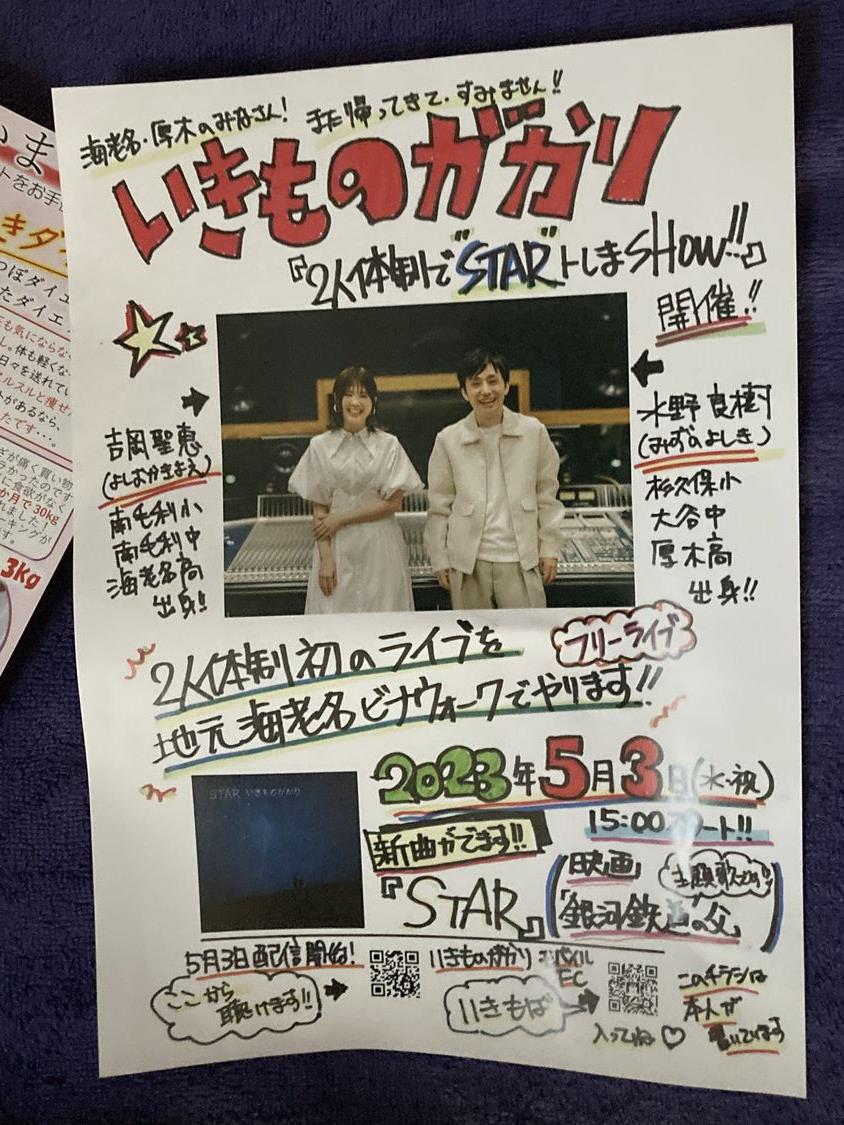 海老名・厚木のみなさん!
また帰ってきて、すみません!!
いきものがかり
『2人体制で"STAR"トしまSHOW!!』
開催!!
吉岡聖恵
(よしおかきよえ)
南毛利小
南毛利中
海老名高
出身!!
水野良樹
(みずのよしき)
杉久保小
大谷中
厚木高
出身!!
2人体制初のライブを
フリーライブ
地元海老名ビナウォークでやります!!
2023年5月3日(水・祝)
15:00スタート!!
新曲がでます!!
『STAR』
(映画
主題歌です!!
「銀河鉄道の父」)
STAR いきものがかり
5月3日配信開始!
ここから
聴けます!!
いきものがかり モバイル
FC
いきもば
入ってね♡
このチラシは
本人が
書いています
いま
トをお手
きダ
つぼダイエ
たダイエ
も気にならな
し。体も軽くな
日々を送れてい
ルスルと痩せ
があるなら、
たです・・。
ざが痛く買い物
かったのです
に食欲がなく
か月で30kg
れました!
ーキングが
す。
3Kg